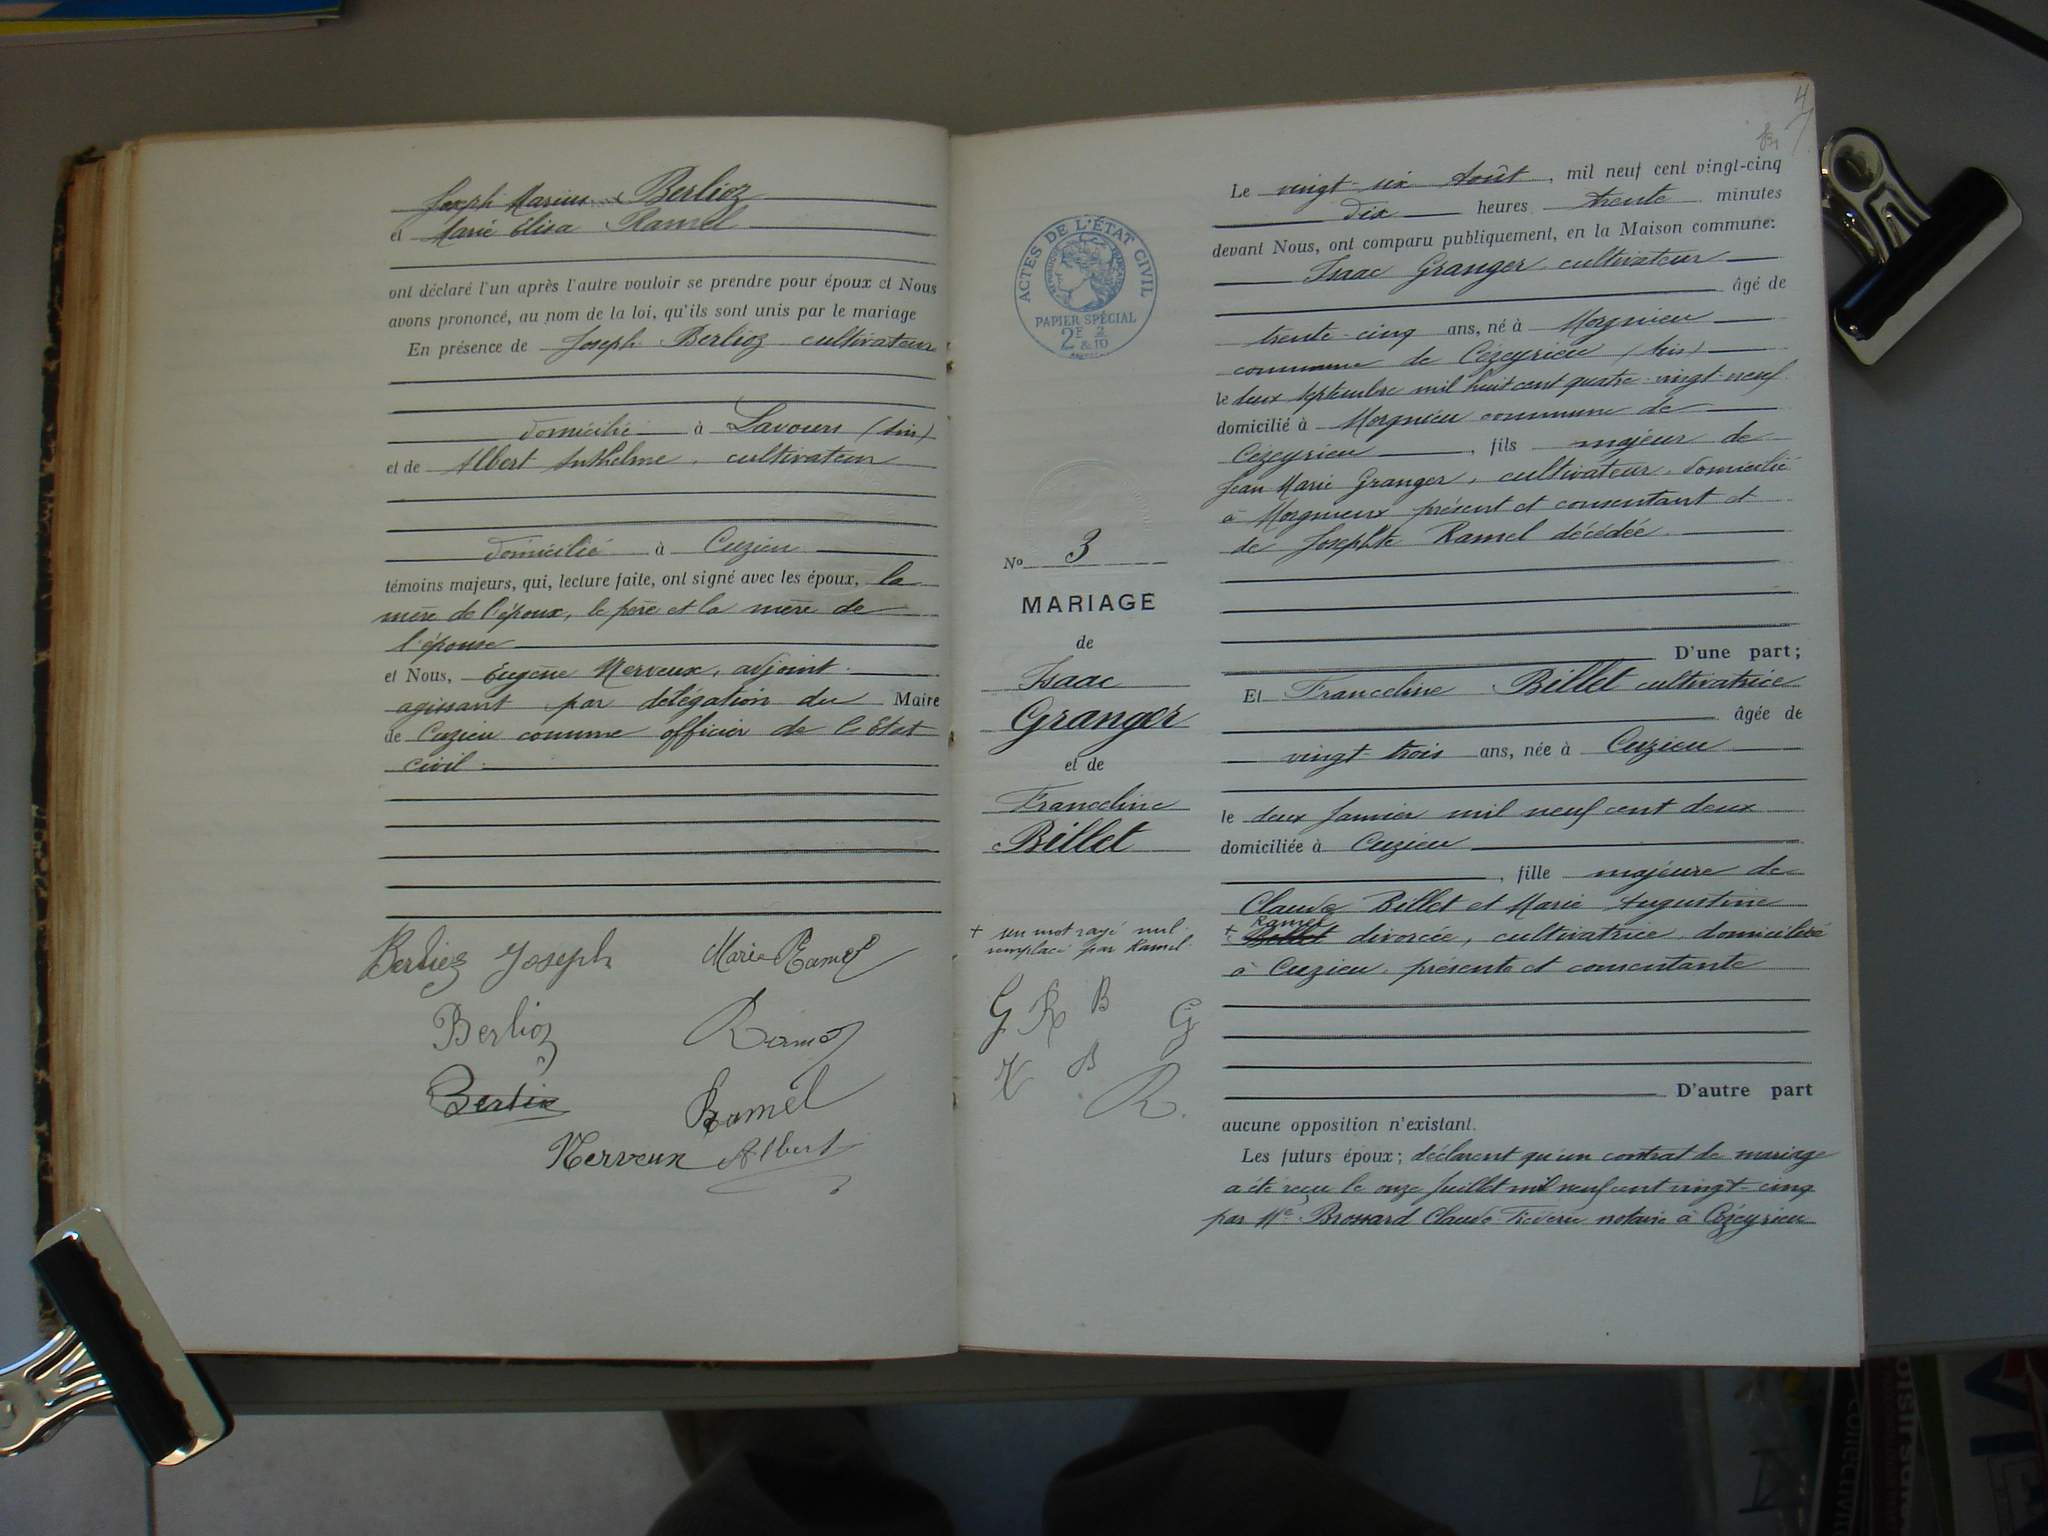 Joseph Marius Berlioz
et Marie Elisa Ramel
ont déclaré l'un après l'autre vouloir se prendre pour époux et Nous
avons prononcé, au nom de la loi, qu'ils sont unis par le mariage
En présence de Joseph Berlioz cultivateur
domicilié à Lavours (Ain)
et de Albert Anthelme, cultivateur
domicilié à Cuzieu
témoins majeurs, qui, lecture faite, ont signé avec les époux, la
mère de l'époux, le père et la mère de
l'épouse
et Nous, Eugène Nerveux, adjoint
agissant par délégation du Maire
de Cuzieu comme officier de l'Etat
civil.
Berlioz Joseph Marie Ramel
Berlioz Ramel
Berlioz Ramel
Nerveux Albert
4
ACTES DE L'ÉTAT CIVIL
PAPIER SPÉCIAL
2F 2
& 10
No 3
MARIAGE
de
Isaac
Granger
et de
Franceline
Billet
+ un mot rayé nul
remplacé par Ramel
G R B G
N B
R.
Le vingt-six Août, mil neuf cent vingt-cinq
dix heures trente minutes
devant Nous, ont comparu publiquement, en la Maison commune:
Isaac Granger cultivateur
âgé de
trente-cinq ans, né à Morgnieu
commune de Ceyzerieu (Ain)
le deux septembre mil huit cent quatre-vingt-neuf
domicilié à Morgnieu commune de
Cézeyrieu, fils majeur de
Jean Marie Granger, cultivateur, domicilié
à Morgnieux présent et consentant et
de Josephte Ramel décédée
D'une part;
Et Franceline Billet cultivatrice
âgée de
vingt-trois ans, née à Cuzieu
le deux Janvier mil neuf cent deux
domiciliée à Cuzieu
, fille majeure de
Claude Billet et Marie Augustine
Ramel
+ Billet divorcée, cultivatrice, domiciliée
à Cuzieu, présente et consentante
D'autre part
aucune opposition n'existant.
Les futurs époux; déclarent qu'un contrat de mariage
a été reçu le onze Juillet mil neuf cent vingt-cinq
par Me Brossard Claude notaire à Cézeyrieu